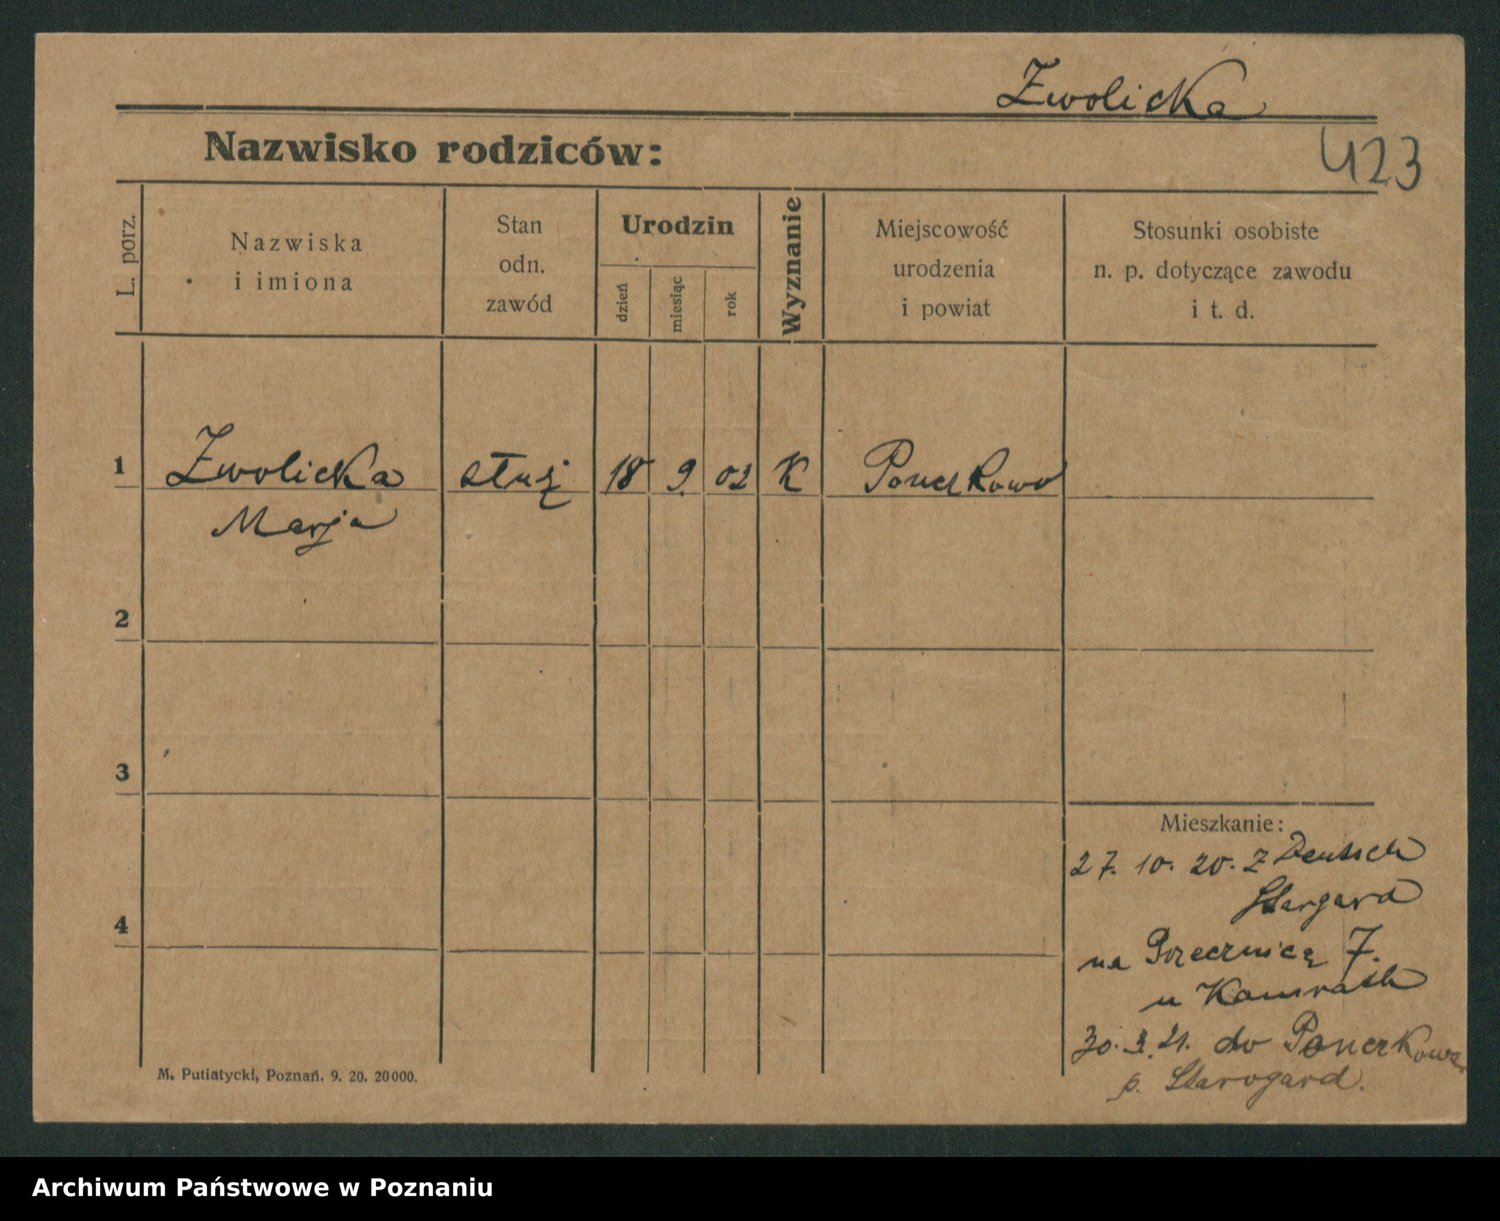 Zwolicka
423
Nazwisko rodziców:
L. porz.
Nazwiska
i imiona
Stan
odn.
zawód
Urodzin
dzień
miesiąc
rok
Wyznanie
Miejscowość
urodzenia
i powiat
Stosunki osobiste
n. p. dotyczące zawodu
i t. d.
1
Zwolicka służ 18 9 02 K Ponczkowo
Marja
2
3
4
Mieszkanie:
27. 10. 20. z Deutsch
Stargard
na 7.
u Kamrath
30. 3. 21. do Ponczkowa
p. Starogard.
M. Putiatycki, Poznań. 9. 20. 20000.
Archiwum Państwowe w Poznaniu